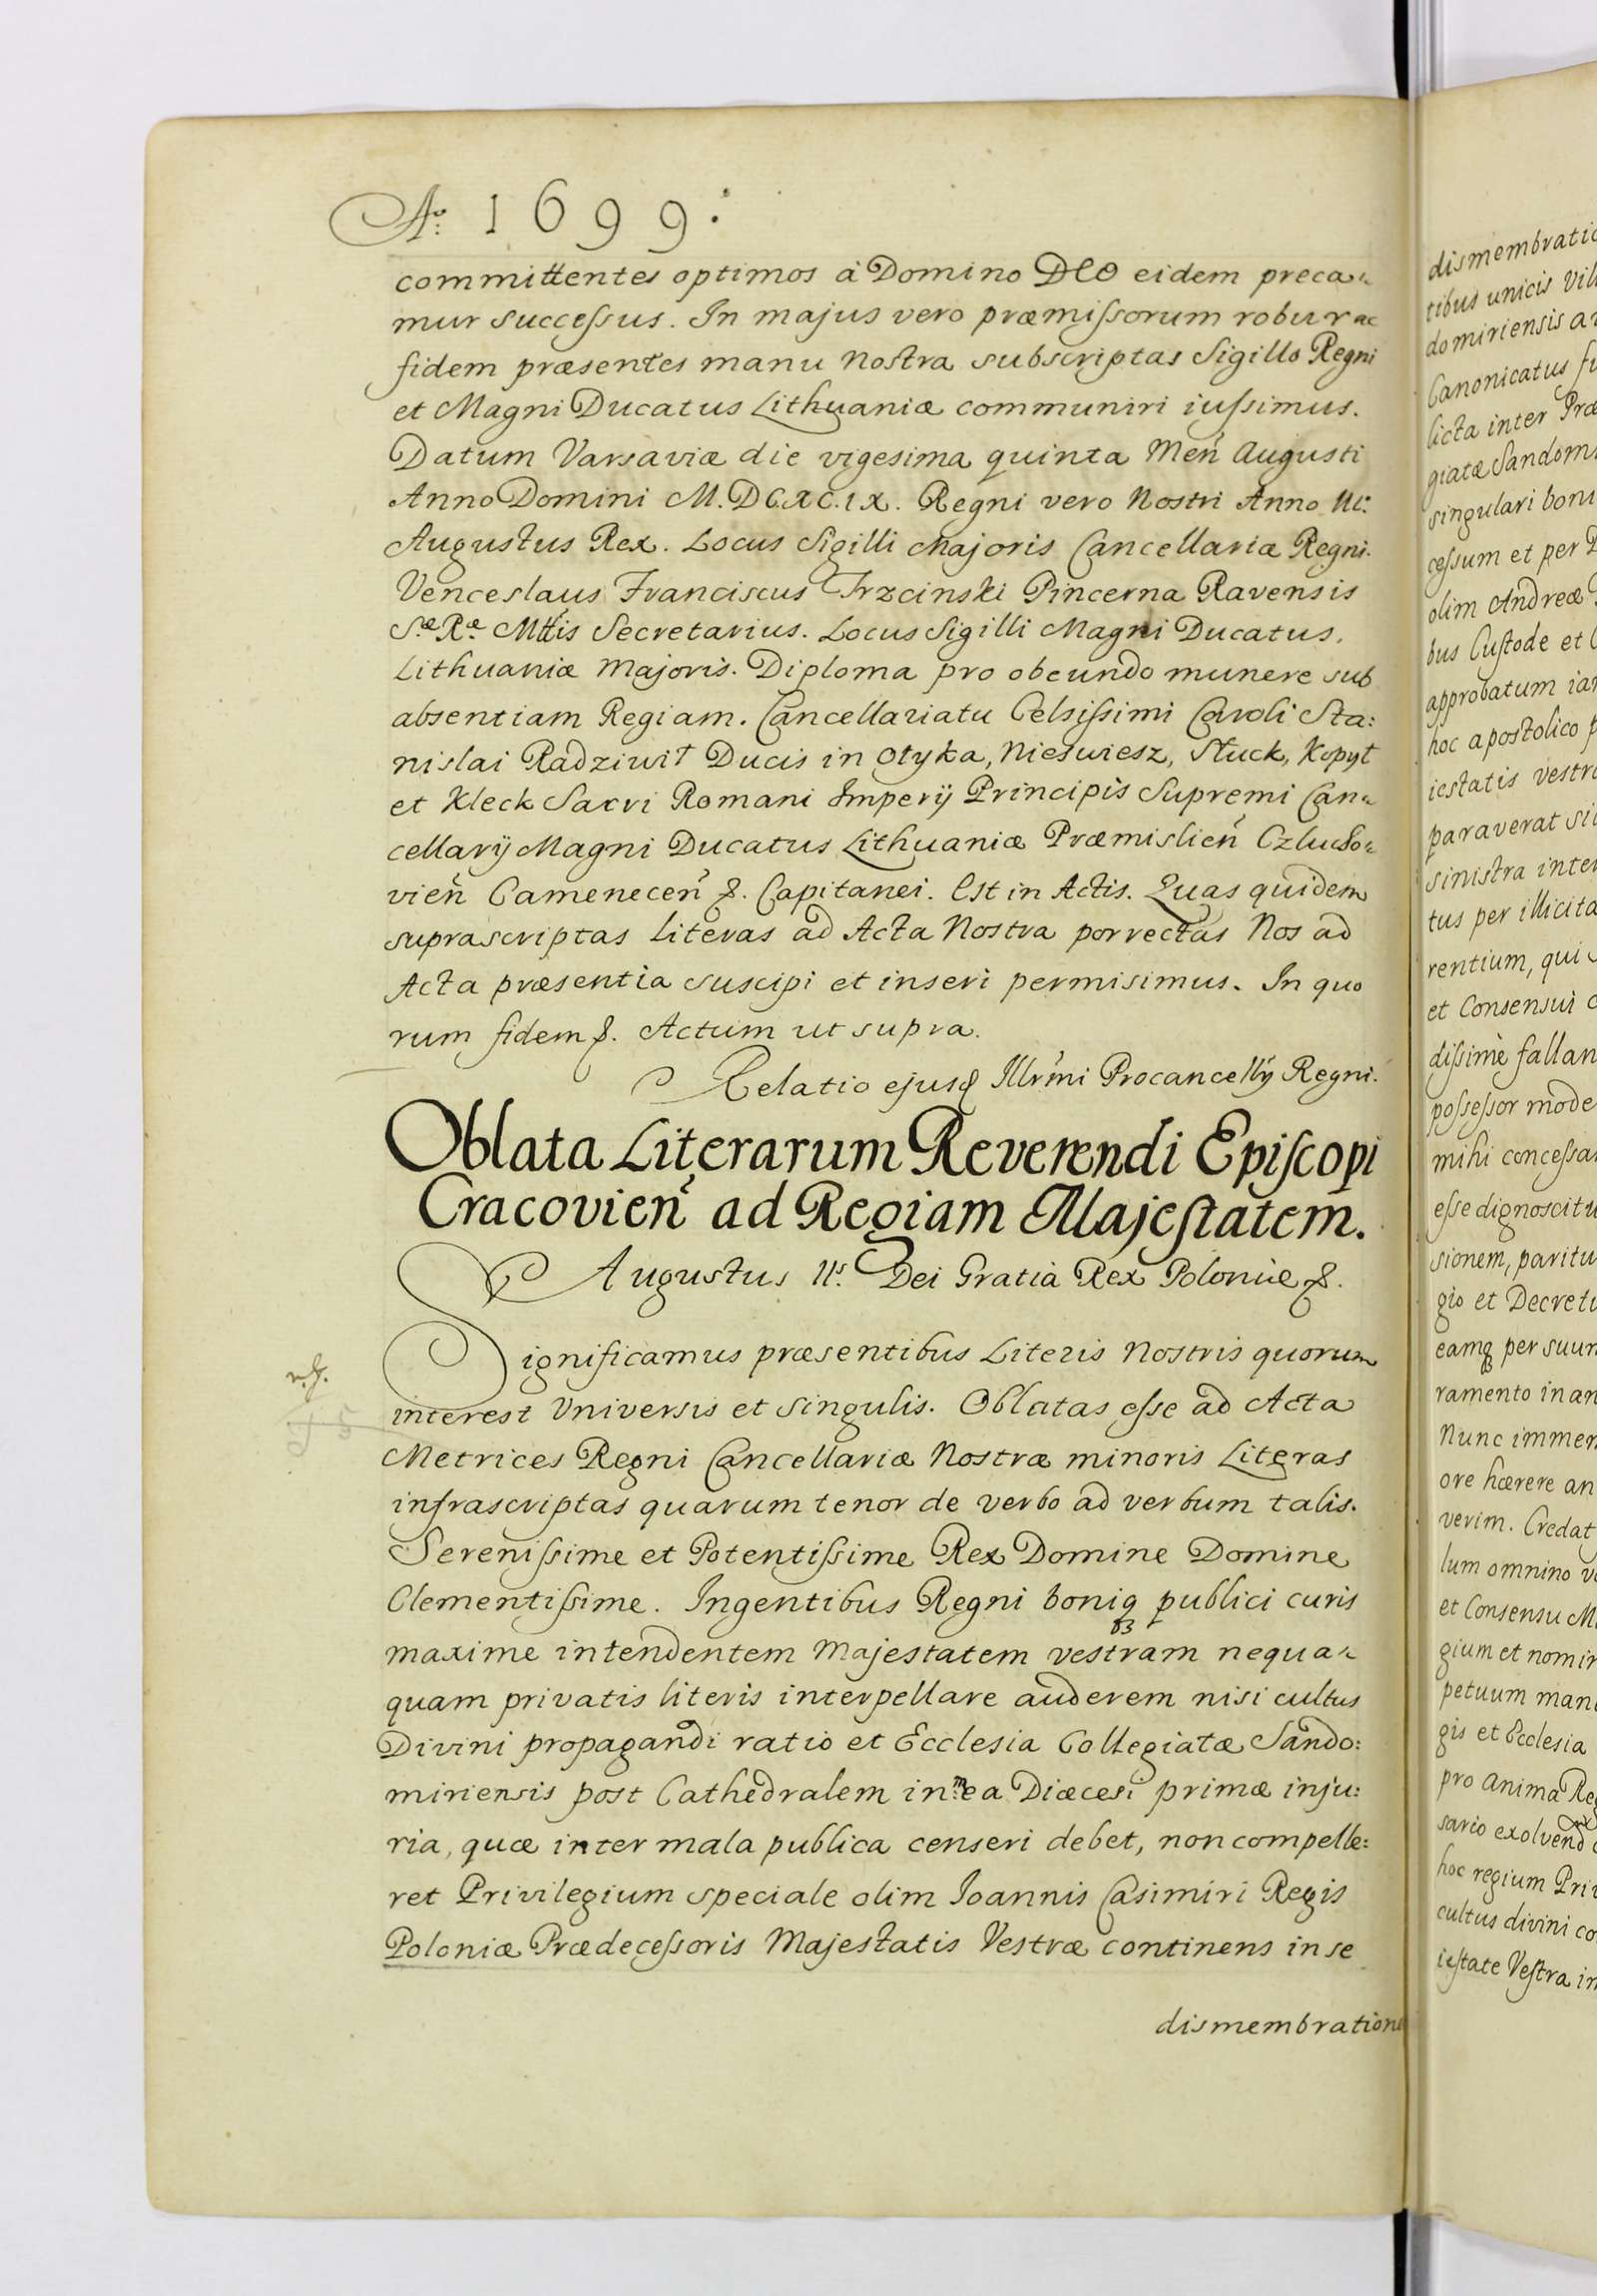 Aº: 1699:
committentes optimos à Domino DEO eidem preca-
mur successus. In majus vero præmissorum robur ac
fidem præsentes manu nostra subscriptas Sigillo Regni
et Magni Ducatus Lithuaniæ communiri iussimus.
Datum Varsaviæ die vigesima quinta Men̄ Augusti
Anno Domini M.DC.XC.IX. Regni vero Nostri Anno III:
Augustus Rex. Locus Sigilli Majoris Cancellariæ Regni.
Venceslaus Franciscus Trzcinski Pincerna Ravensis
S.æ R.æ Mttis Secretarius. Locus Sigilli Magni Ducatus,
Lithuaniæ Majoris. Diploma pro obeundo munere sub
absentiam Regiam. Cancellariatu Celsissimi Caroli Sta:
nislai Radziwił Ducis in Ołyka, Nieswiesz, Słuck, Kopył
et Kleck Sacri Romani Imperij Principis Supremi Can-
cellarij Magni Ducatus Lithuaniæ Præmislien̄ Czlucho-
vien̄ Camenecen̄ &. Capitanei. Est in Actis. Quas quidem
suprascriptas literas ad Acta Nostra porrectas Nos ad
Acta præsentia suscipi et inseri permisimus. In quo
rum fidem &. Actum ut supra.
Relatio ejusd Illr̄mi Procancellrij Regni.
Oblata Literarum Reverendi Episcopi
Cracovien̄ ad Regiam Majestatem.
Augustus IIs. Dei Gratia Rex Poloniæ &.
Significamus præsentibus Literis Nostris quorum
interest Universis et singulis. Oblatas esse ad Acta
Metrices Regni Cancellariæ Nostræ minoris Literas
infrascriptas quarum tenor de verbo ad verbum talis.
Serenissime et Potentissime Rex Domine Domine
Clementissime. Ingentibus Regni boniq publici curis
maxime intendentem Majestatem vestram nequa-
quam privatis literis interpellare auderem nisi cultus
Divini propagandi ratio et Ecclesia Collegiatæ Sando:
miriensis post Cathedralem in mea Diæcesi primæ inju:
ria, quæ inter mala publica censeri debet, non compelle:
ret Privilegium speciale olim Ioannis Casimiri Regis
Poloniæ Prædecessoris Majestatis Vestræ continens in se
dismembratione
dismembratio
tibus unicis vil
domiriensis a
Canonicatus fu
licta inter Præ
giatæ Sandom
singulari boni
cessum et per
olim Andreæ
bus Custode et
approbatum ia
hoc apostolico p
iestatis vestr
paraverat si
sinistra inte
tus per illicita
rentium, qui
et Consensui
dissimè fallan
possessor mode
mihi concessa
esse dignoscitu
sionem, paritu
gio et Decretu
eamq per suu
ramento in an
Nunc immer
ore hærere an
verim. Credat
lum omnino v
et Consensu M
gium et nomi
petuum man
gis et Ecclesia
pro anima Re
sario exolvend
hoc regium Pri
cultus divini co
iestate Vestra in